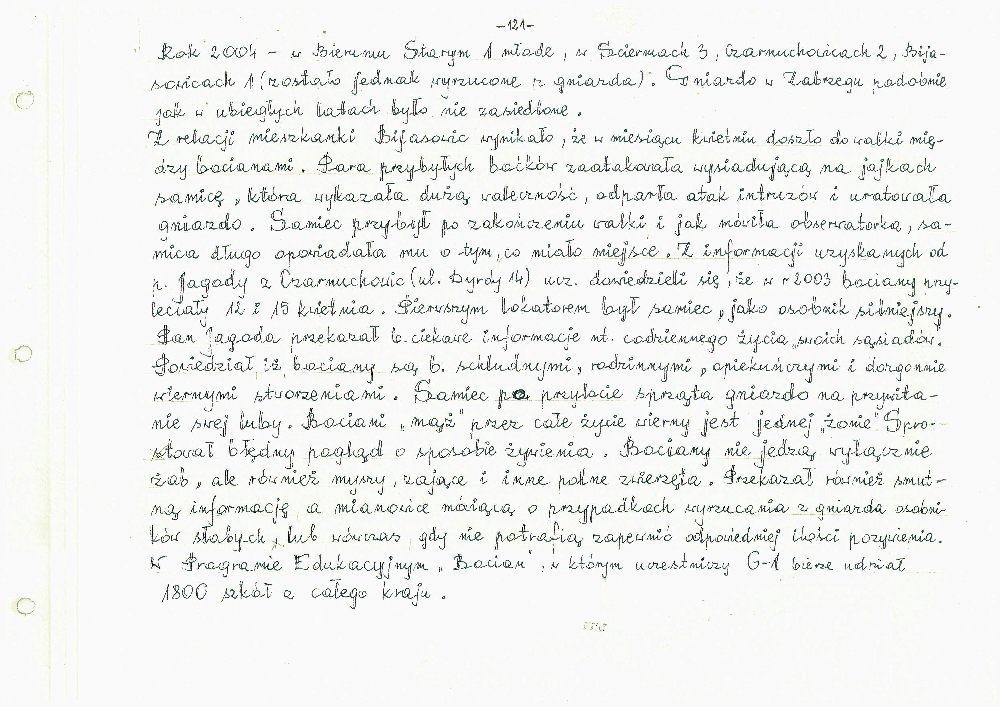 -121-
Rok 2004 - w Bieruniu Starym 1 młode, w Ściernach 3, Czarnuchowicach 2, Bija-
sowicach 1 (zostało jednak wyrzucone z gniazda). Gniazdo w Zabrzegu podobnie
jak w ubiegłych latach było nie zasiedlone.
Z relacji mieszkanki Bijasowic wynikało, że w miesiącu kwietniu doszło do walki mię-
dzy bocianami. Para przybyłych boćków zaatakowała wysiadującą na jajkach
samicę, która wykazała dużą waleczność, odparła atak intruzów i uratowała
gniazdo. Samiec przybył po zakończeniu walki i jak mówiła obserwatorka, sa-
mica długo opowiadała mu o tym, co miało miejsce. Z informacji uzyskanych od
p. Jagody z Czarnuchowic (ul. Dyrdy 14) ucz. dowiedzieli się, że w r 2003 bociany przy-
leciały 12 i 15 kwietnia. Pierwszym lokatorem był samiec, jako osobnik silniejszy.
Pan Jagoda przekazał b. ciekawe informacje nt. codziennego życia swoich sąsiadów.
Powiedział iż bociany są b. schludnymi, rodzinnymi, opiekuńczymi i dozgonnie
wiernymi stworzeniami. Samiec po przylocie sprząta gniazdo na przywita-
nie swej luby. Bociani "mąż" przez całe życie wierny jest jednej "żonie" Spro-
stował błędny pogląd o sposobie żywienia. Bociany nie jedzą wyłącznie
żab, ale również myszy, zające i inne polne zwierzęta. Przekazał również smut-
ną informację a mianowice mówiącą o przypadkach wyrzucania z gniazda osobni-
ków słabych, lub wówczas, gdy nie potrafią zapewnić odpowiedniej ilości pożywienia.
W Programie Edukacyjnym "Bocian", w którym uczestniczy G-1 bierze udział
1800 szkół z całego kraju.